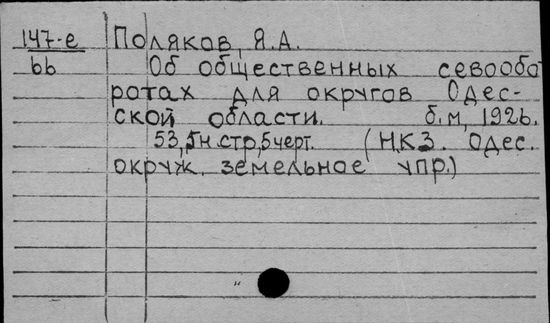 147-е Поляков, Я.А.
66 Об общественных севообо
ротах для округов Одес-
ской области. б.м, 1926.
53,5н.стр,5черт. (НКЗ. Одес.
окруж. земельное упр.)